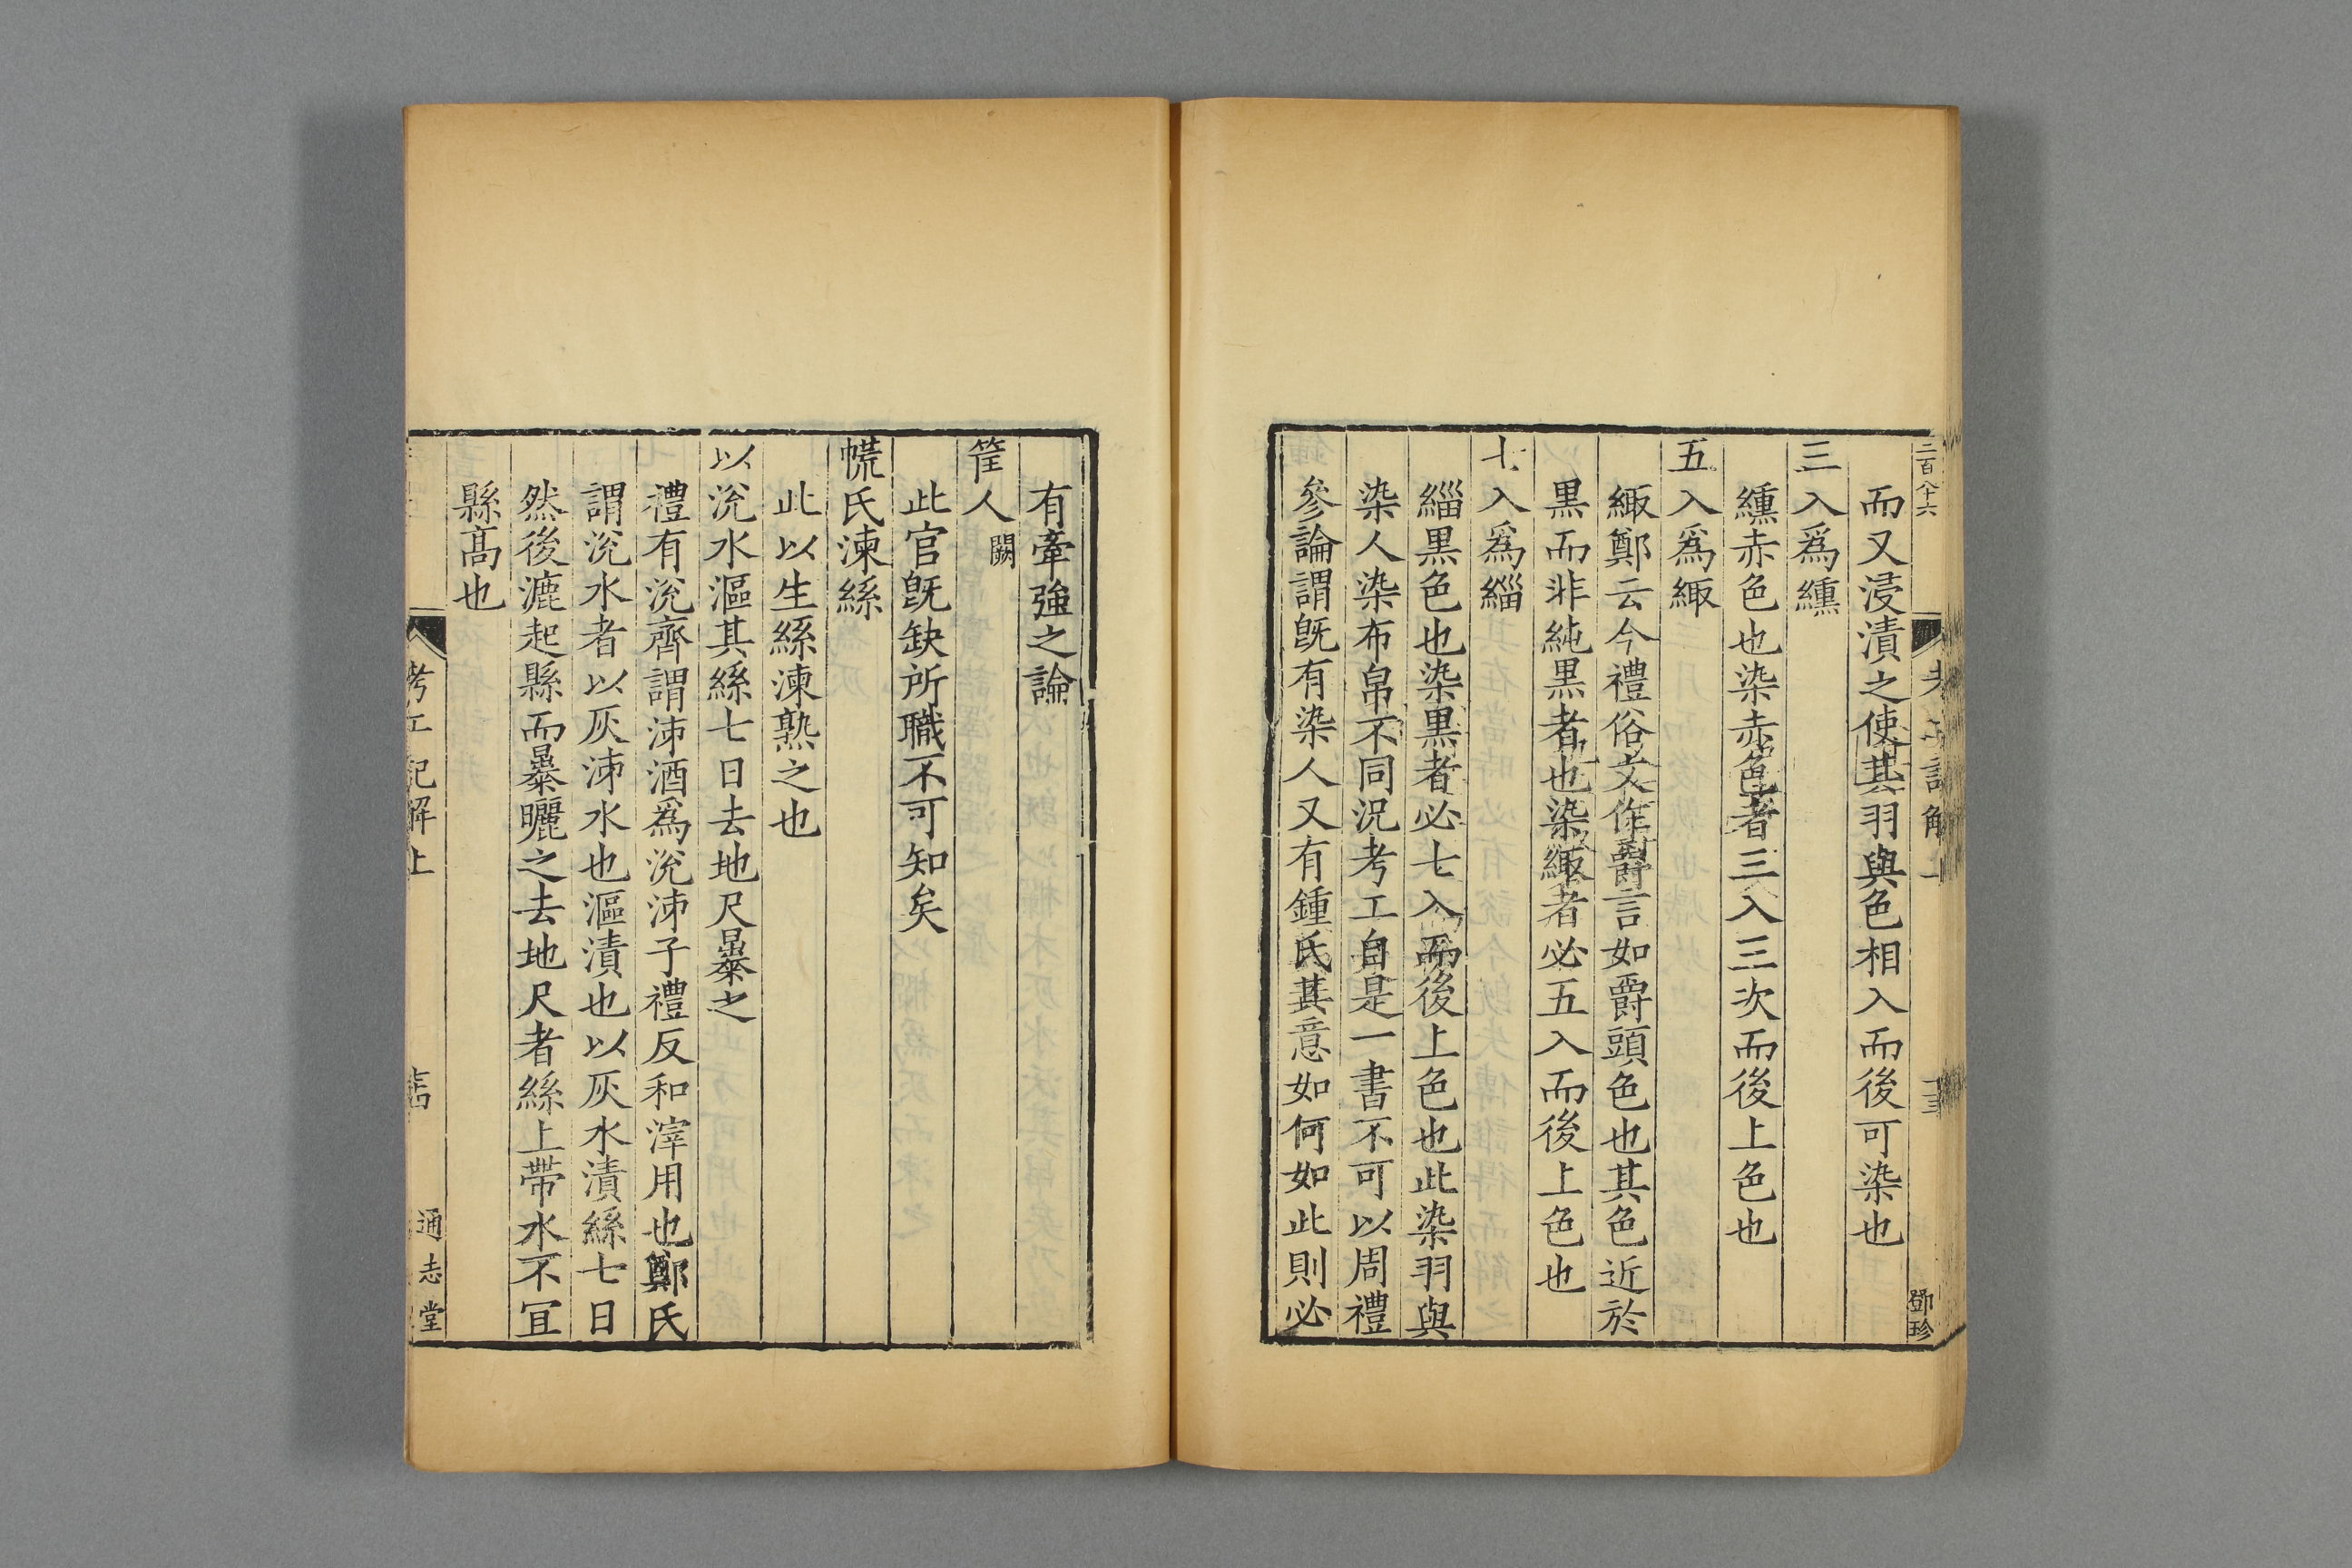 二百八十六
鄧珍
而又浸漬之使其羽與色相入而後可染也
三入爲纁
纁赤色也染赤色者三入三次而後上色也
五入爲緅
緅鄭云今禮俗文作爵言如爵頭色也其色近於
黒而非純黒者也染緅者必五入而後上色也
七入爲緇
緇黒色也染黒者必七入而後上色也此染羽與
染人染布帛不同況考工自是一書不可以周禮
參論謂旣有染人又有鍾氏其意如何如此則必
有牽強之論
筐人闕
此官旣缺所職不可知矣
㡛氏湅絲
此以生絲湅熟之也
以涚水漚其絲七日去地尺暴之
禮有涚齊謂泲酒爲涚泲子禮反和滓用也鄭氏
謂涚水者以灰泲水也漚漬也以灰水漬絲七日
然後漉起縣而暴曬之去地尺者絲上帶水不宜
縣高也
考工記解上
通志堂